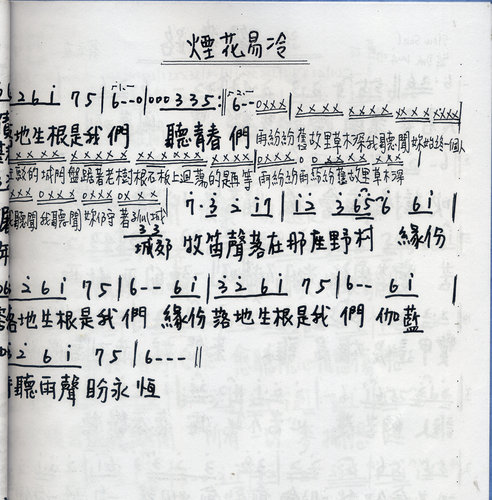 煙花易冷
2 6 i 7 5 | 6--0 | 0 0 0 3 3 5 :|| 6-- 0xxx | xxxx xxxx xxx x xxxx |
地生根是我們 聽青春們 雨紛紛 舊故里草木深我聽聞 妳始終一個人
xxxx xxxx xxxx xxxx | xxxx xxxx xxxx 0xxx | 0xxx 0xxx xxxx xxxx
駁的城門 盤踞著老樹根石板上迴蕩的是再等 雨紛紛雨紛紛舊故里草木深
聽聞我聽聞 妳仍守著孤城
7·3 2 i7 | i2 3 656 6i |
3 3
城郊 牧笛聲落在那座野村 緣份
2 6 i 7 5 | 6-- 6i | 3 2 6 i 7 5 | 6-- 6i |
落地生根是我們 緣份落地生根是我們 伽藍
2 6 i 7 5 | 6--- ||
聽雨聲盼永恆